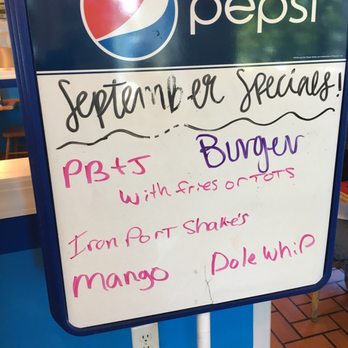 pepsi
September Specials!
PB+J Burger
with fries or TOTS
Iron Port Shake's
Mango Dole whip